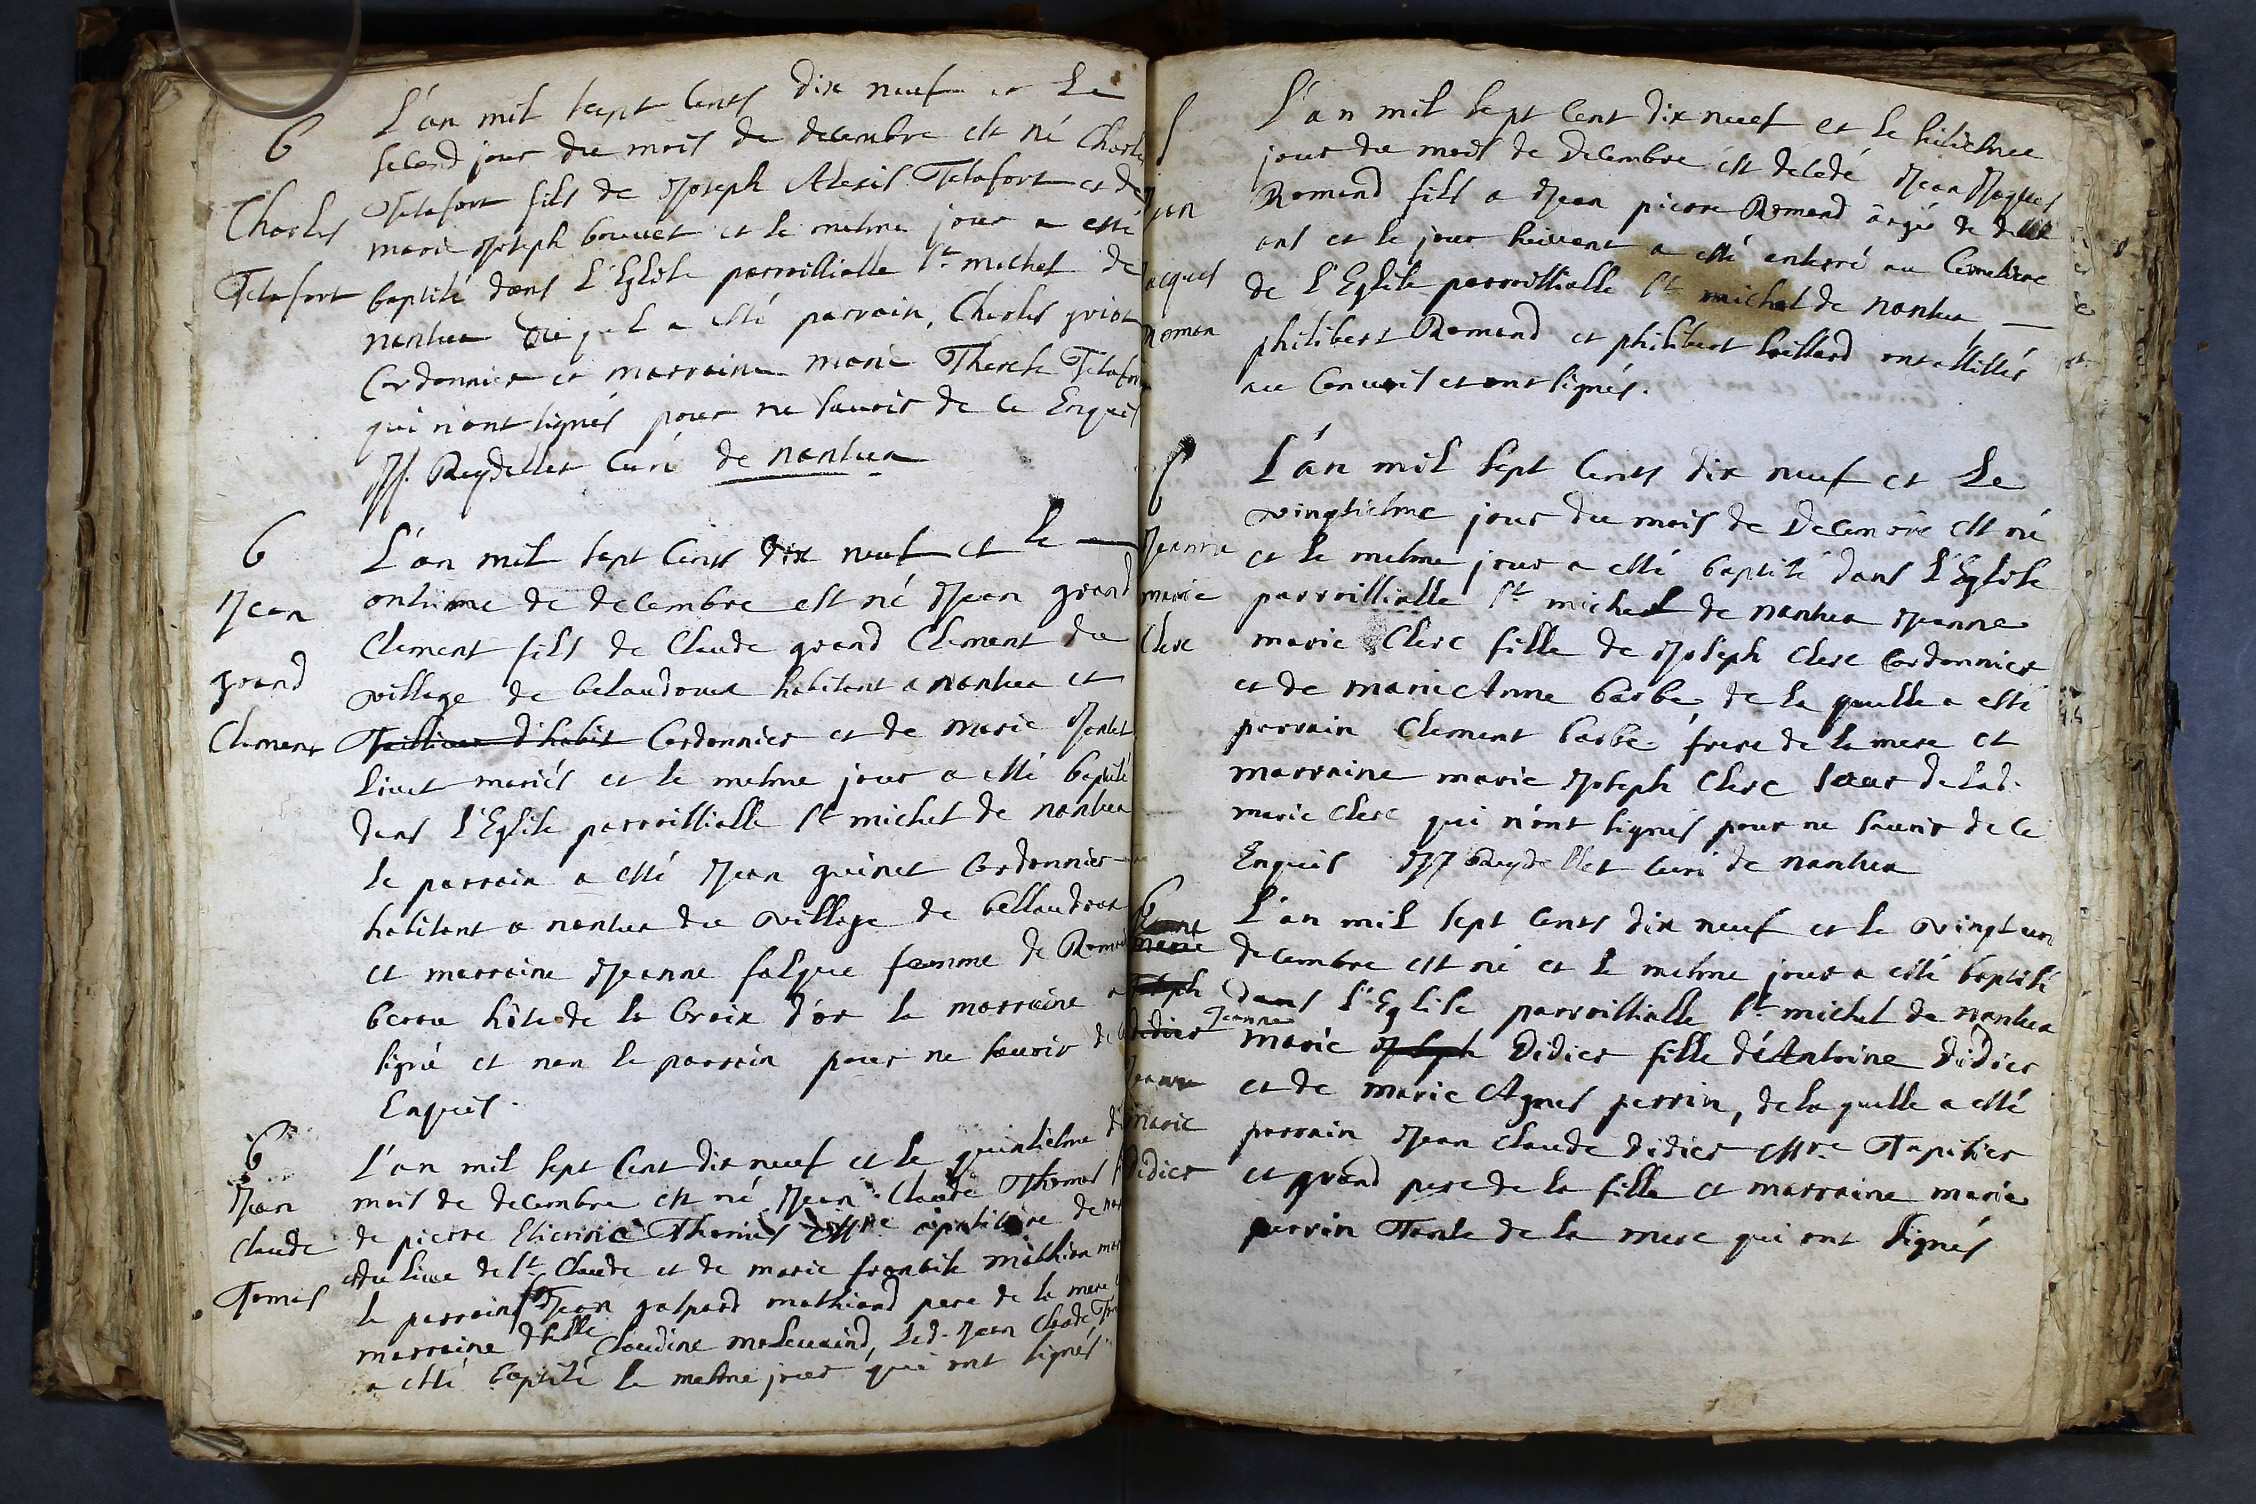 B
Charles
Tetafort
L'an mil sept Cents dix neuf et Le
second jour du mois de decembre est né Charles
Tetafort fils de Joseph Alexis Tetafort et de
marie Joseph bouvet et le mesme jour a esté
baptisé dans L'Eglise parroissialle St michel de
nantua du quel a esté parrain, Charles
Cordonnier et marraine marie Therese Tetafort
qui n'ont signés pour ne sauoir de ce Enquis
JJ. Reydellet Curé de nantua
B
Jean
grand
Clement
L'an mil sept Cents dix neuf et Le
onsieme de decembre est né Jean grand
Clement fils de Claude grand Clement du
village de belaudoux habitant a nantua et
Tailleur d'habit Cordonnier et de marie
mariés et le mesme jour a esté baptisé
dans L'Eglise parroissialle St michel de nantua
le parrain a esté Jean guinet Cordonnier
habitant a nantua du village de
et marraine Jeanne falque femme de
hôte de la Croix d'or la marraine a
signé et non le parrain pour ne sauoir de ce
Enquis.
B
Jean
Claude
Tomas
L'an mil sept Cent dix neuf et le quinsiesme du
mois de decembre est né Jean Claude Thomas
de pierre Etienne Thomas
du lieu de St Claude et de marie fransoise
le parrain Jean gaspard mathiand pere de la mere
marraine dlle Claudine Led. Jean Claude
a esté baptisé le mesme jour qui ont signés
S
Jean
Jacques
Roman
L'an mil sept Cent dix neuf et le huitiesme
jour du mois de decembre est decedé Jean Jaques
Romand fils a Jean pierre Romand aagé de deux
ans et le jour suivant a esté enterré au Cemetiere
de L'Eglise parroissialle St michel de nantua
philibert Romand et philibert ont assistés
au Convois et ont signés.
B
Jeanne
marie
Clerc
L'an mil sept Cents dix neuf et Le
vingtiesme jour du mois de Decembre est né
et le mesme jour a esté baptisé dans L'Eglise
parroissialle St michel de nantua Jeanne
marie Clerc fille de Joseph Clerc Cordonnier
et de marie Anne barbe, de la quelle a esté
parrain Clement barbe frere de la mere et
marraine marie Joseph Clerc soeur de lad.
marie Clerc qui n'ont signés pour ne sauoir de ce
Enquis JJ Reydellet Curé de nantua
B
marie
Joseph
didier
Jeanne
marie
didier
L'an mil sept Cents dix neuf et le vingt un
decembre est né et le mesme jour a esté baptisé
dans L'Eglise parroissialle St michel de nantua
Jeanne
marie Joseph Didier fille d'Antoine Didier
et de marie Agnes perrin, de la quelle a esté
parrain Jean Claude Didier Mre Tapisier
et grand pere de la fille et marraine marie
perrin Tante de la mere qui ont signés